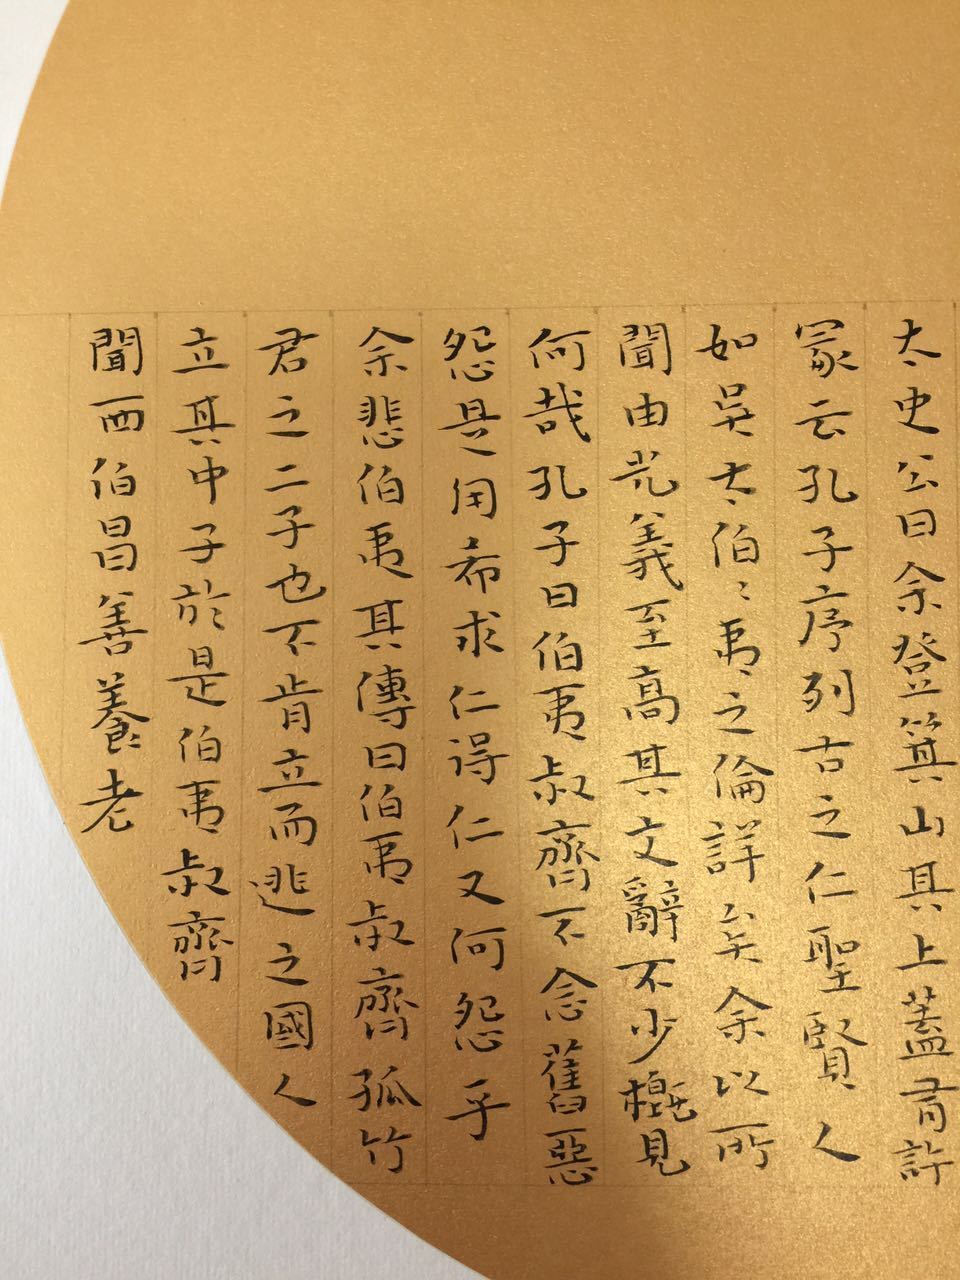 太史公曰余登箕山其上蓋有許
冢云孔子序列古之仁聖賢人
如吳太伯〻夷之倫詳矣余以所
聞由光義至高其文辭不少概見
何哉孔子曰伯夷叔齊不念舊惡
怨是用希求仁得仁又何怨乎
余悲伯夷其傳曰伯夷叔齊孤竹
君之二子也不肯立而逃之國人
立其中子於是伯夷叔齊
聞西伯昌善養老